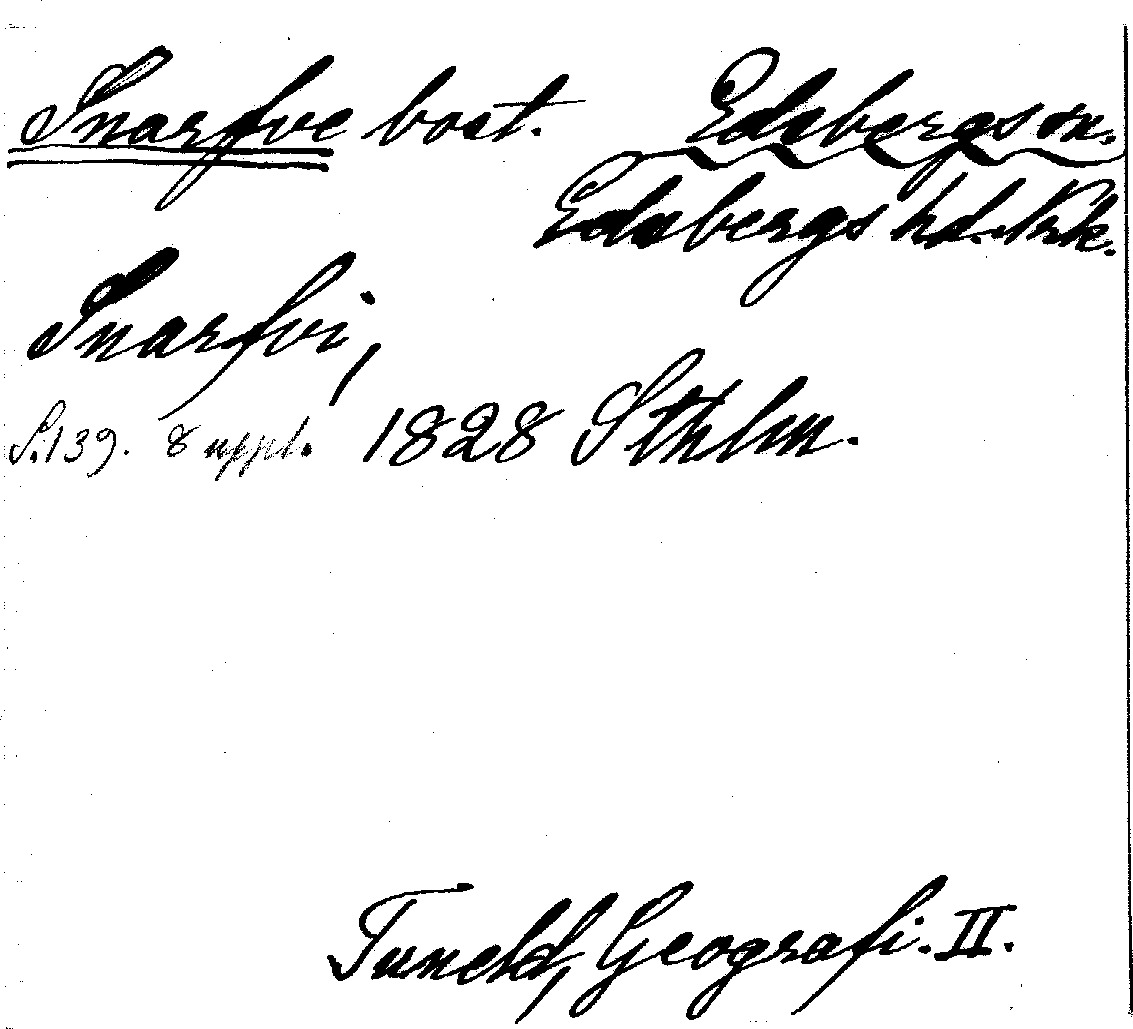 Snarfve bost. Edsbergs sn.
Edsbergs hd. Nrk.
Snarfvi,
S. 139. 8 uppl. 1828 Sthlm.
Tuneld, Geografi. II.